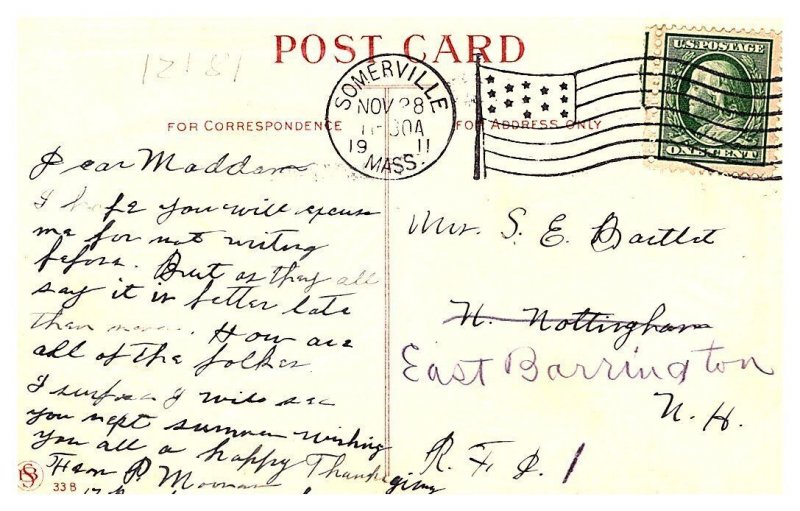 POST CARD
12181
SOMERVILLE
NOV 28
11-30A
19 11
MASS.
U.S. POSTAGE
ONE CENT
FOR CORRESPONDENCE
FOR ADDRESS ONLY
Dear Maddam
I hope you will excuse
me for not writing
before. But as they all
say it is better late
than never. How are
all of the folkes
I surpose I will see
you next summer wishing
you all a happy Thanksgiving
From P.
33 B
Mrs. S. E. Bartlet
N. Nottingham
East Barrington
N. H.
R. F. D. 1